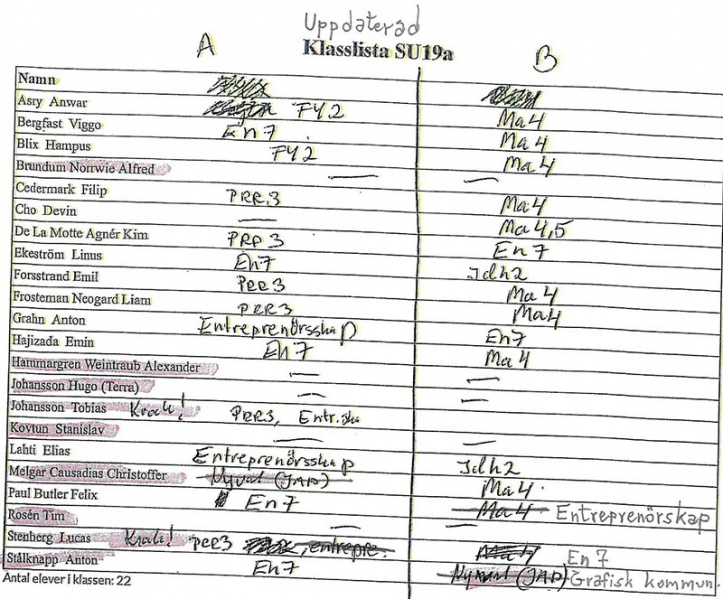 Uppdaterad
A Klasslista SU19a B
Namn
Asry Anwar FY2 Ma4
Bergfast Viggo En7 Ma4
Blix Hampus FY2 Ma4
Brundum Norrwie Alfred — —
Cedermark Filip PRR3 Ma4
Cho Devin — Ma4,5
De La Motte Agnér Kim PRR3 En7
Ekeström Linus En7 Idh2
Forsstrand Emil PRR3 Ma4
Frosteman Neogard Liam PRR3 Ma4
Grahn Anton Entreprenörsskap En7
Hajizada Emin En7 Ma4
Hammargren Weintraub Alexander — —
Johansson Hugo (Terra) — —
Johansson Tobias PRR3, Entr.ska
Kovtun Stanislav — —
Lahti Elias Entreprenörsskap Idh2
Melgar Causadias Christoffer Nyval (JAP) Ma4.
Paul Butler Felix En7 Ma4 Entreprenörskap
Rosén Tim — —
Stenberg Lucas PRR3 , entrepre. En7
Stålknapp Anton En7 Nyval (JAP) Grafisk kommun.
Antal elever i klassen: 22